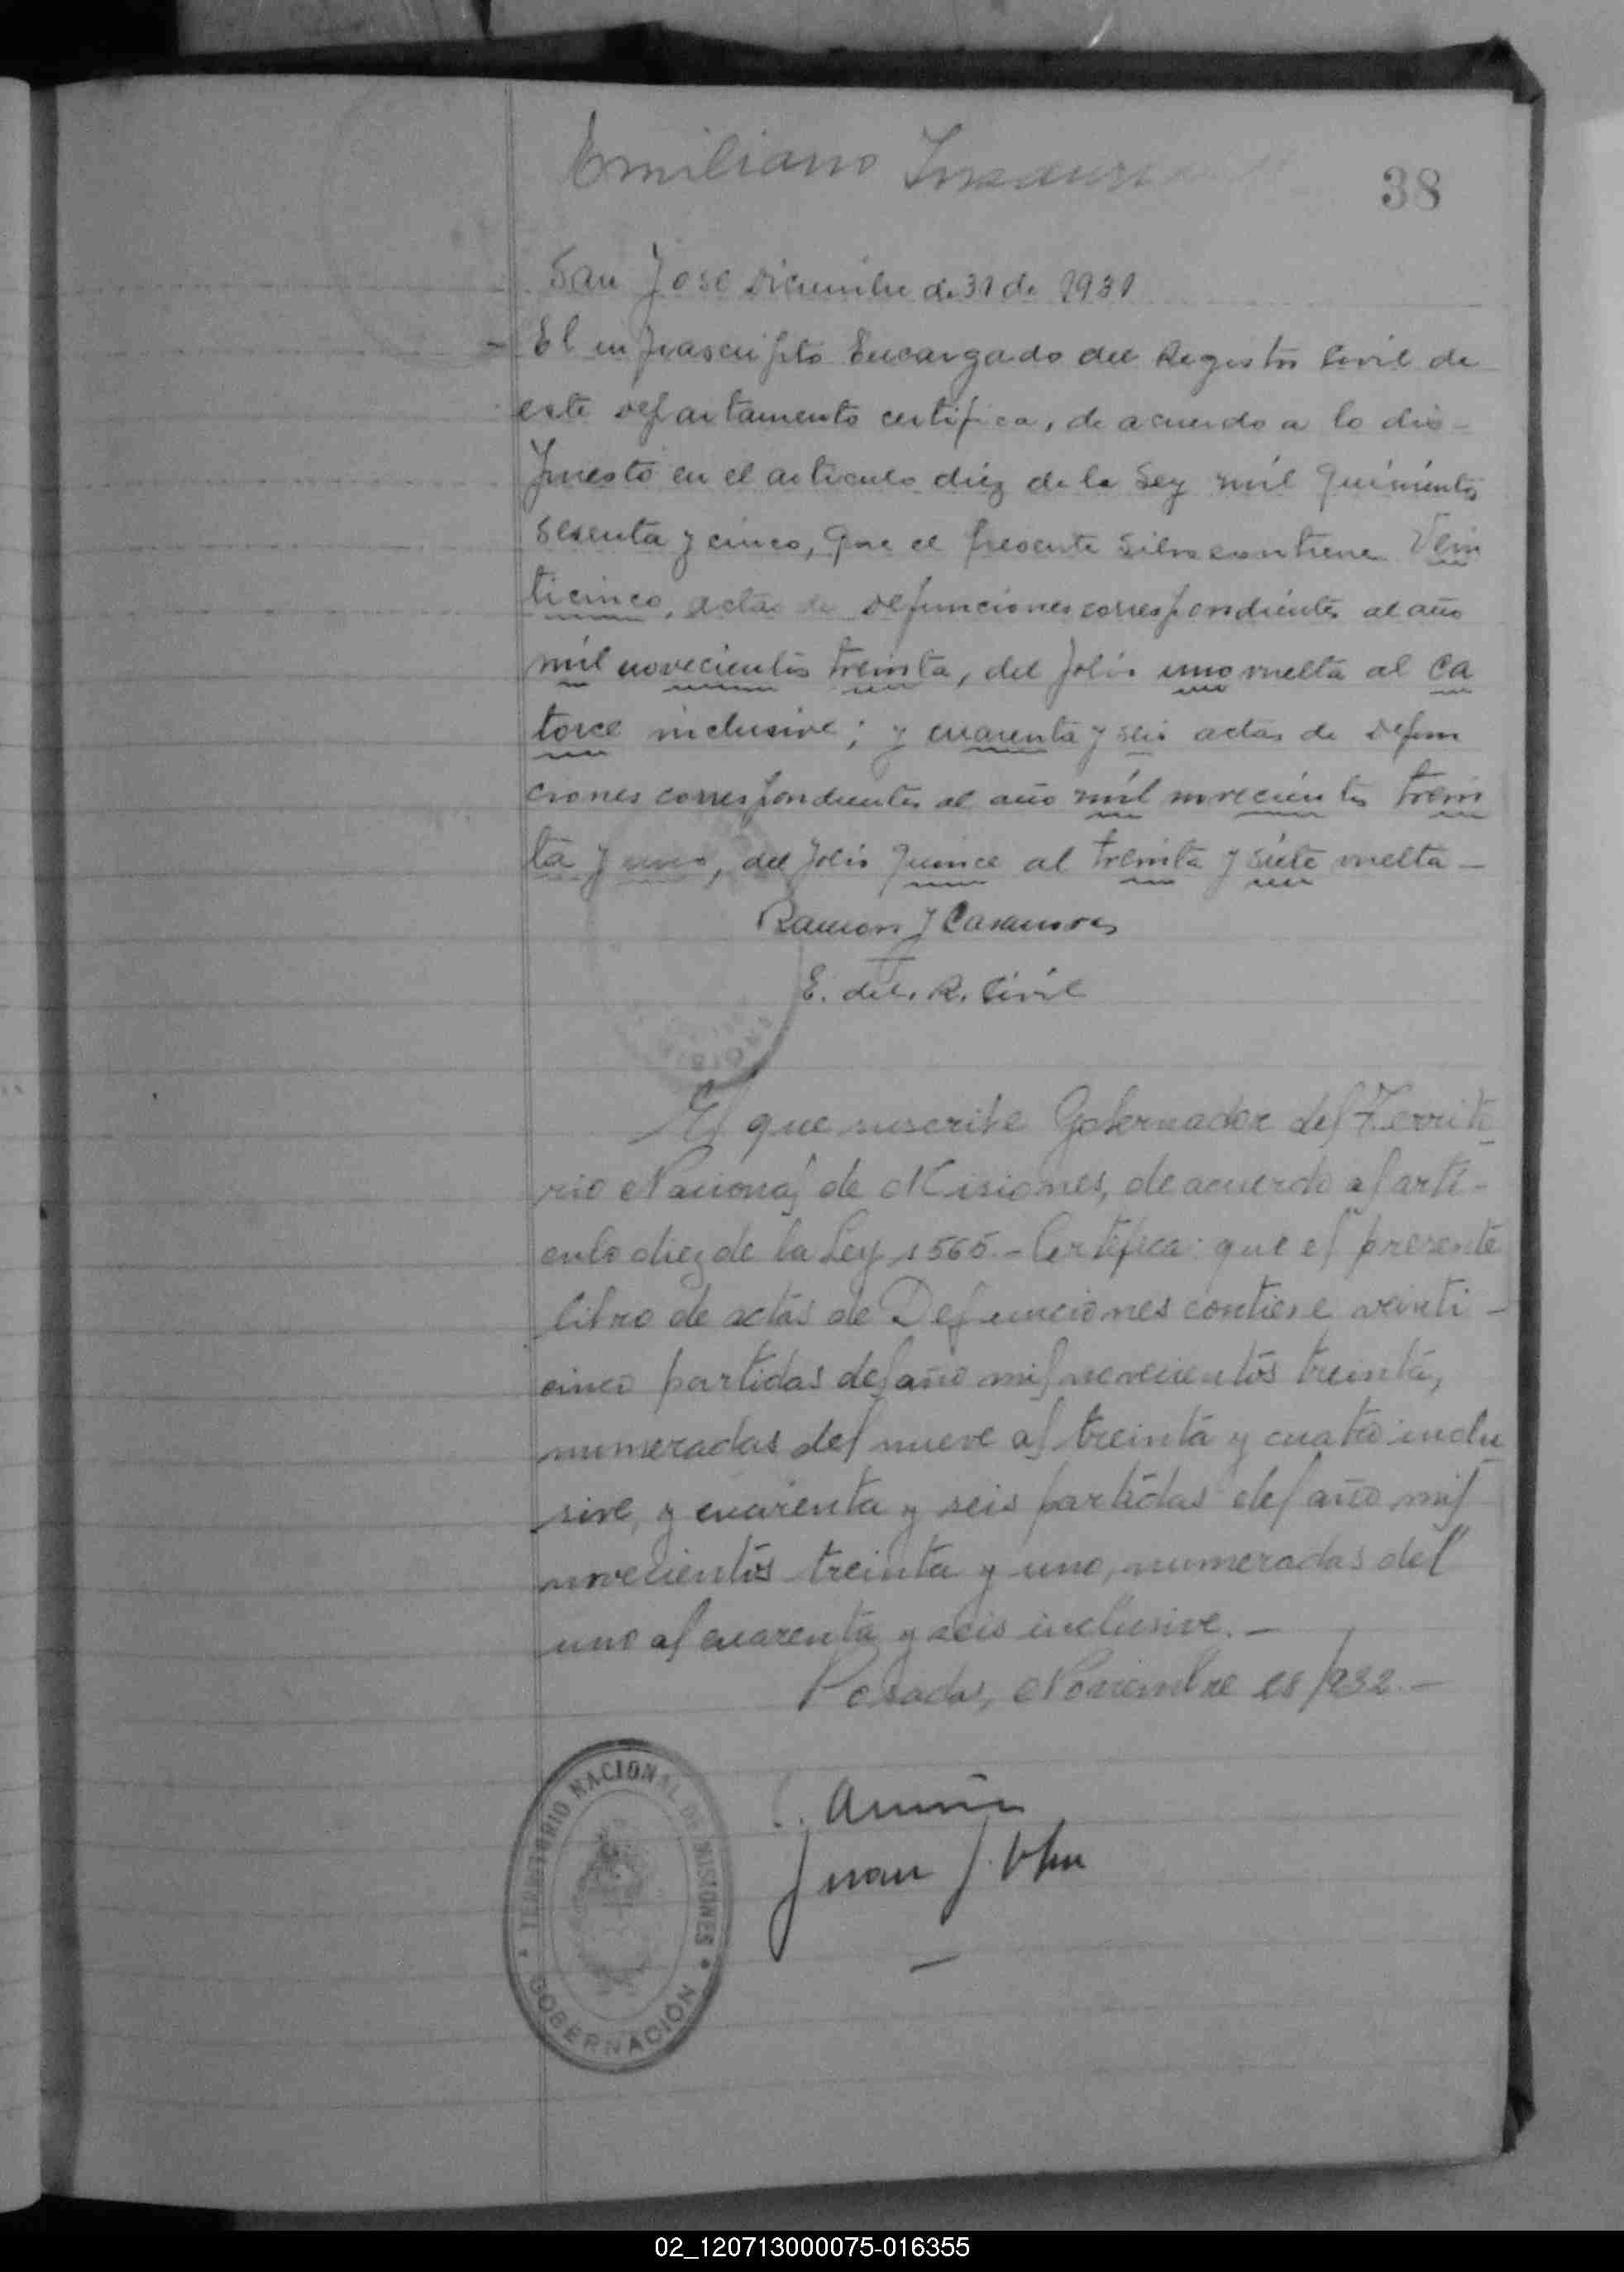 Emiliano
38
San Jose Diciembre de 31 de 1931
- El infrascripto Encargado del Registro Civil de
este departamento certifica, de acuerdo a lo dis-
puesto en el articulo diez de la Ley mil quinientos
sesenta y cinco, que el presente Libro contiene Vein
ticinco, actas de defunciones correspondientes al año
mil novecientos treinta, del folio uno vuelta al ca
torce inclusive; y cuarenta y seis actas de defun
ciones correspondientes al año mil novecientos trein
ta y uno, del folio quince al treinta y siete vuelta -
Ramon J Casanova
E. del. R. Civil
El que suscribe Gobernador del Territo
rio Nacional de Misiones, de acuerdo al arti-
culo diez de la Ley 1565.- Certifica: que el presente
libro de actas de Defunciones contiene veinti-
cinco partidas del año mil novecientos treinta,
numeradas del nueve al treinta y cuatro inclu
sive, y cuarenta y seis partidas del año mil
novecientos treinta y uno, numeradas del
uno al cuarenta y seis inclusive.-
Posadas, Noviembre 1932.-
Juan J.
TERRITORIO NACIONAL DE MISIONES
GOBERNACIÓN
02_120713000075-016355